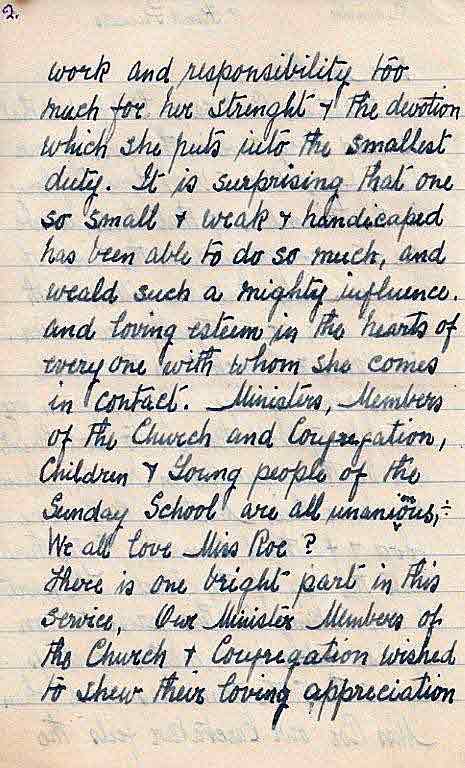 2.
work and responsibility too
much for her strenght & the devotion
which she puts into the smallest
duty. It is surprising that one
so small & weak & handicaped
has been able to do so much, and
weald such a mighty influence.
and loving esteem in the hearts of
every one with whom she comes
in contact. Ministers, Members
of the Church and Congregation,
Children & Young people of the
Sunday School are all unanimous,:-
We all love Miss Roe ?
There is one bright part in this
service, Our Minister Members of
the Church & Congregation wished
to shew their loving appreciation